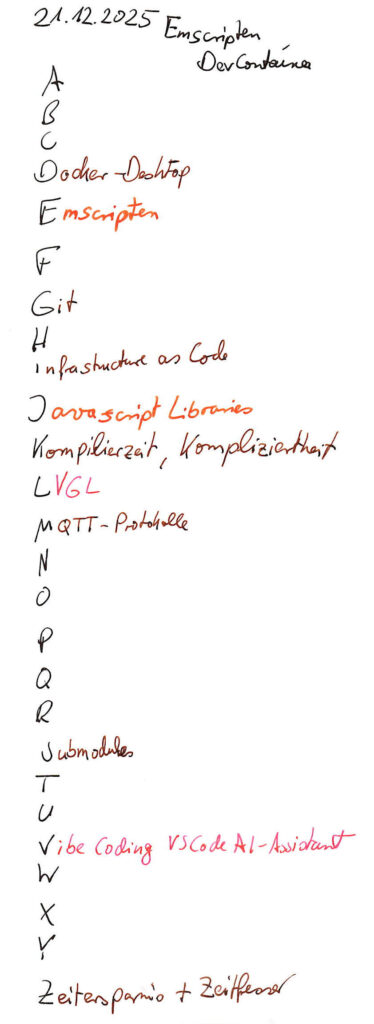 21.12.2025 Emscripten
DevContainer
A
B
C
Docker-Desktop
Emscripten
F
Git
H
infrastructure as Code
Javascript Libraries
Kompilierzeit, Kompliziertheit
LVGL
MQTT-Protokolle
N
O
P
Q
R
Submodules
T
U
Vibe Coding VSCode AI-Assistant
W
X
Y
Zeitersparnis + Zeitfresser